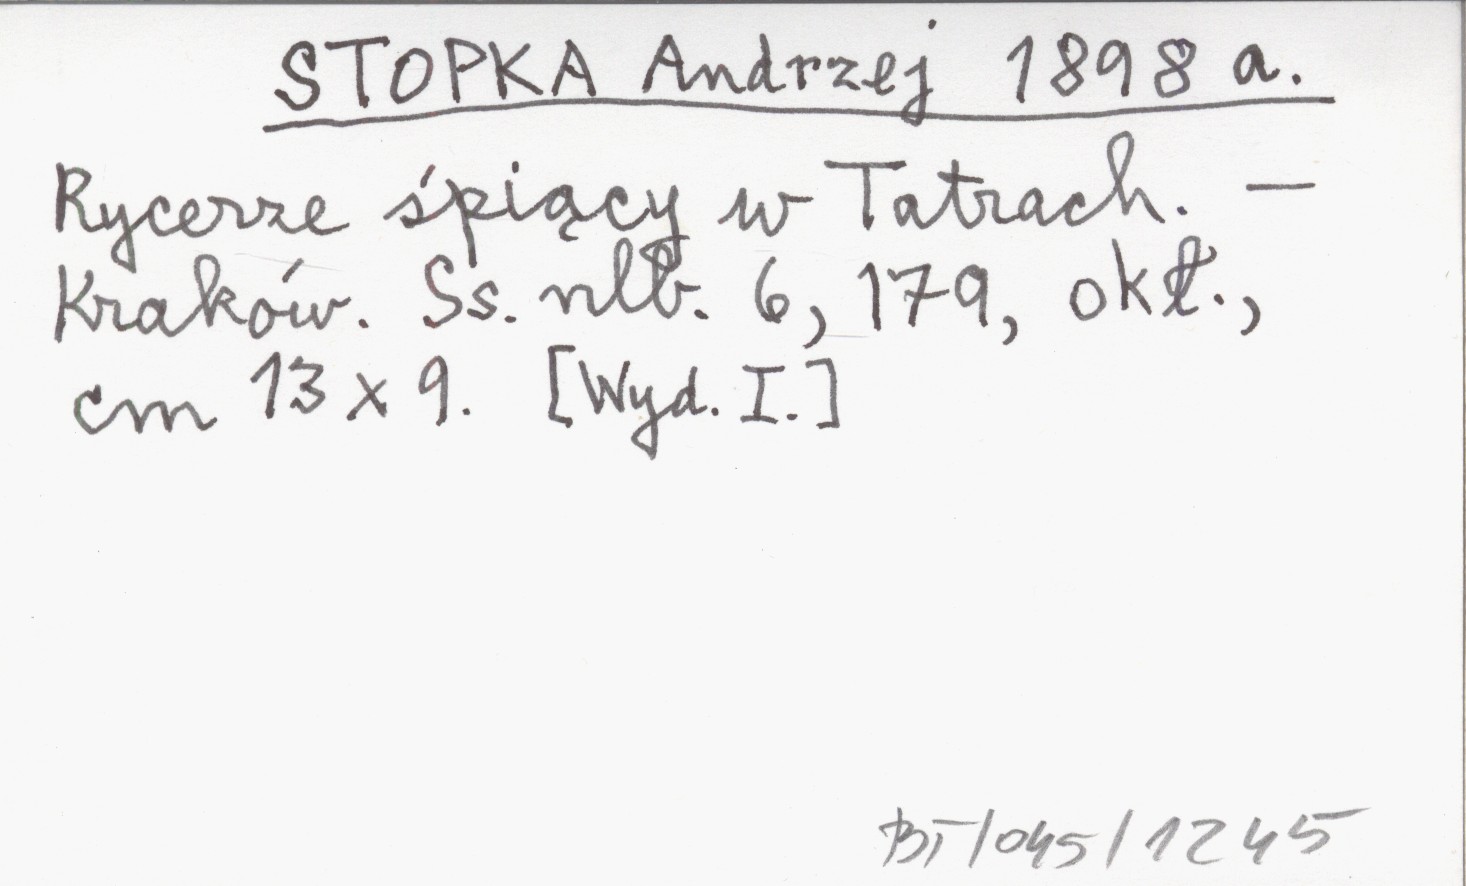 STOPKA Andrzej 1898 a.
Rycerze śpiący w Tatrach. —
Kraków. Ss. nlb. 6, 179, okł.,
cm 13 x 9. [Wyd. I.]
BT/045/1245